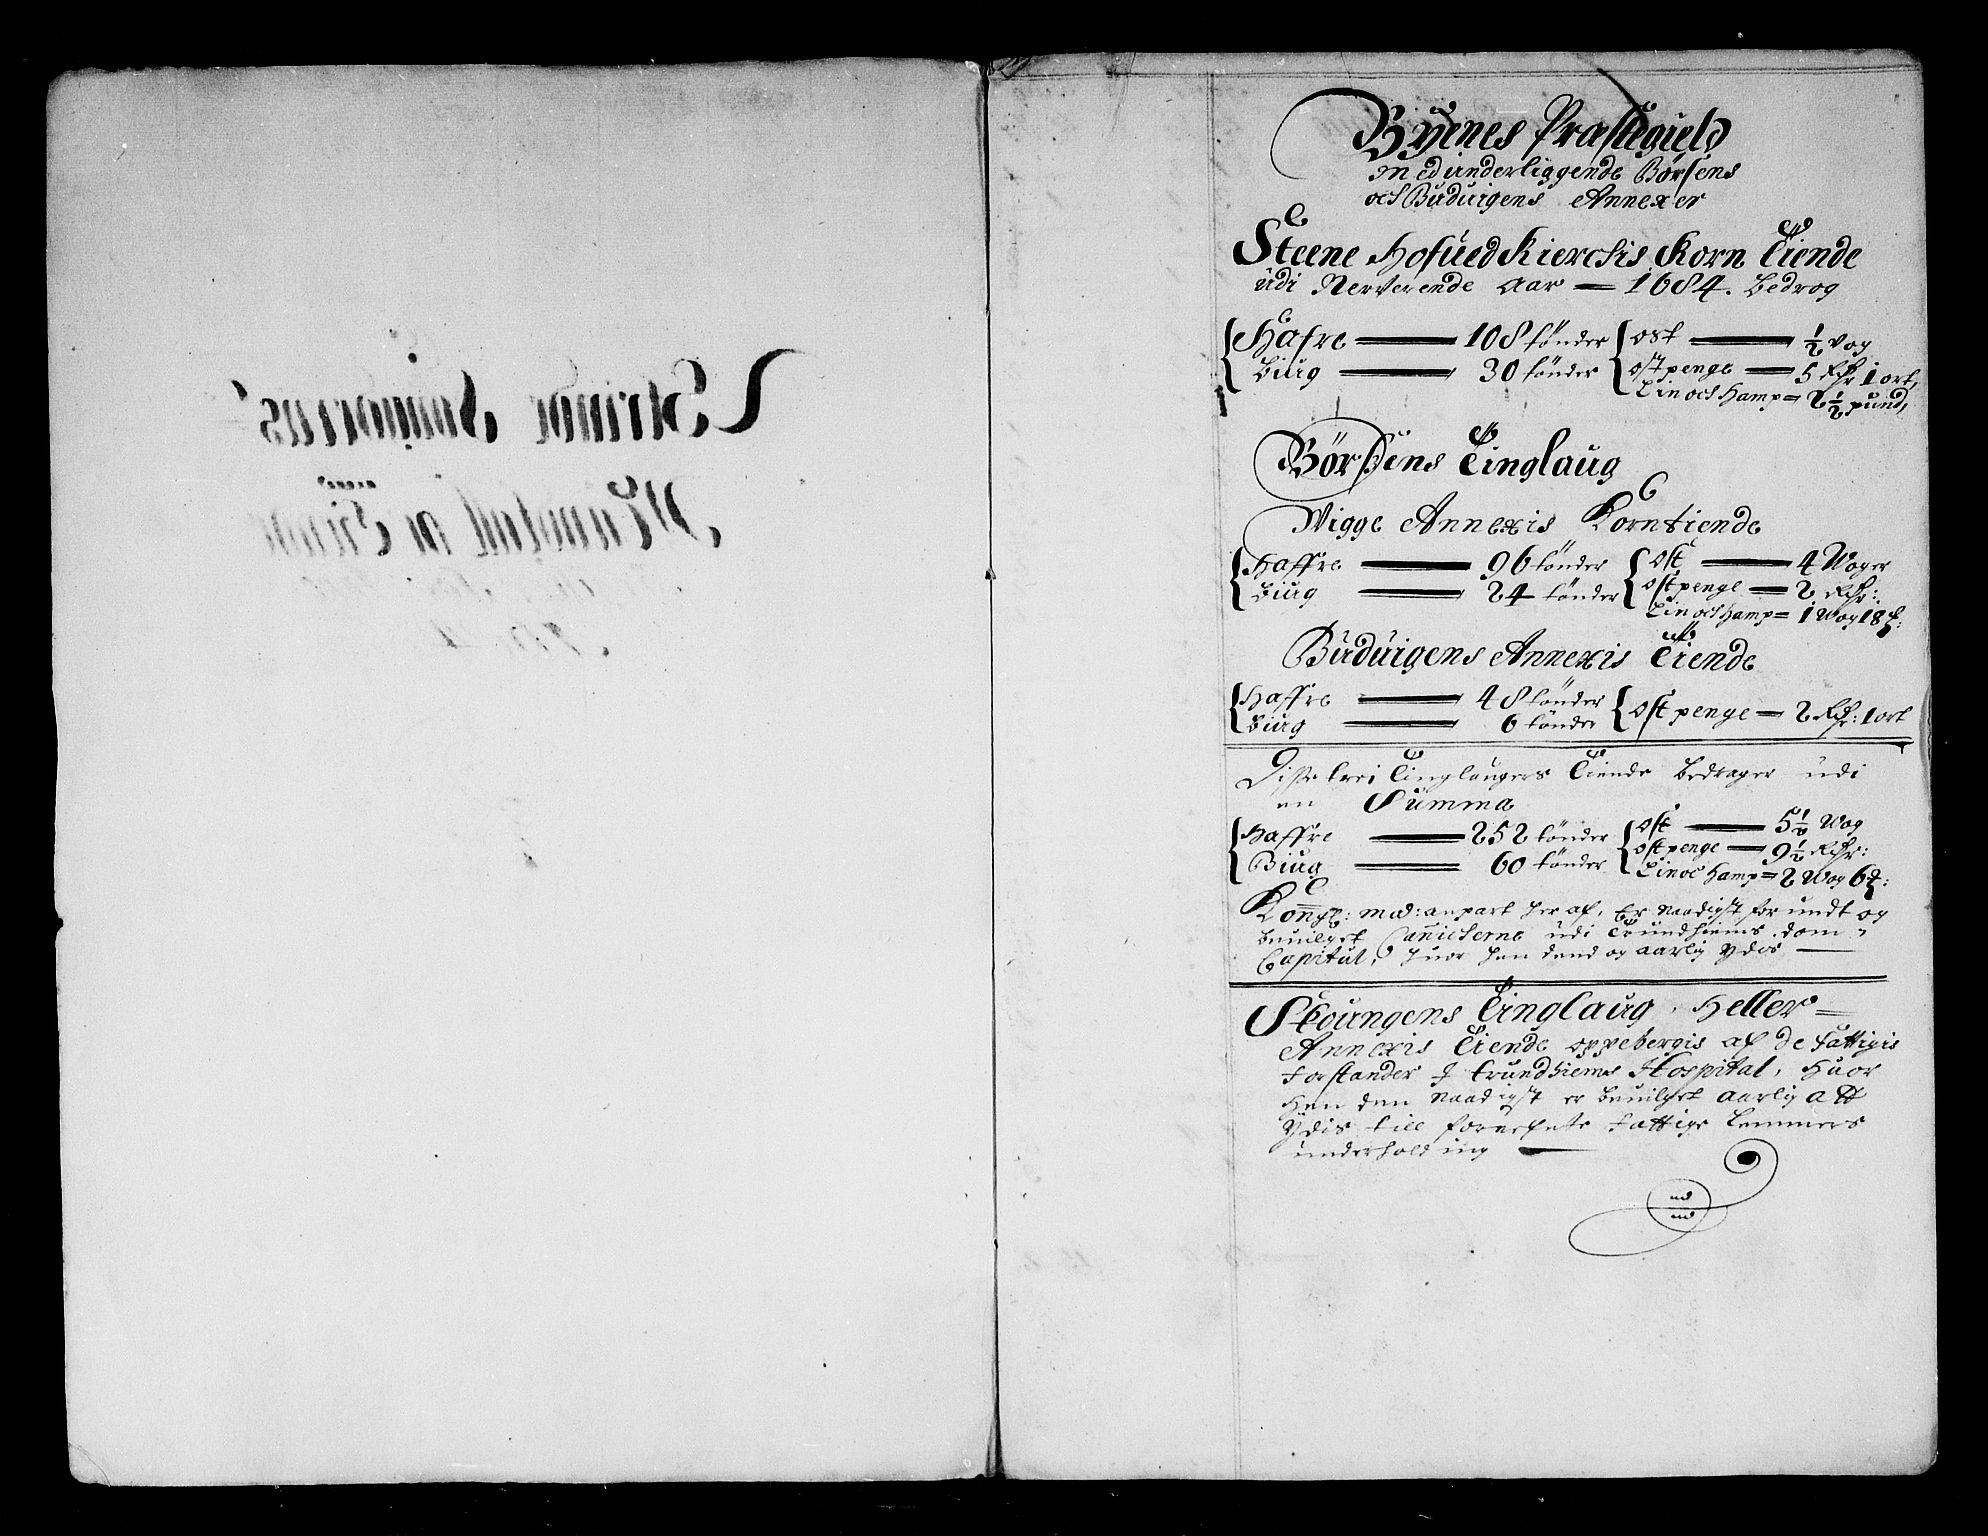 Byenes Præstegield
Med underliggende Børsens
och Buduigens Annexer
Steene Hofued Kierchis Korn Tiende
udi Nerverende Aar — 1684. bedrog
Hafre — 108 tønder ost — ½ vog
Biug — 30 tønder ostpenge — 5 Rdr 1 ort,
Lin och Hamp = 2½ pund,
Børsens Tinglaug
Wigge Annexis Korntiende
Haffre — 96 tønder Ost — 4 Woger
Biug — 24 tønder ostpenge — 2 Rdr:
Lin och Hamp = 1 Wog 18 ℔:
Buduigens Annexis Tiende
Haffre — 48 tønder
Biug — 6 tønder Ostpenge — 2 Rdr: 1 ort
Disse trei Tinglaugers Tiende bedrager udi
en Summa
Haffre — 252 tønder Ost — 5½ Wog
Biug — 60 tønder ostpenge — 9½ Rdr:
Lin oc Hamp = 2 Wog 6 ℔:
Kongl: May: anpart her af, Er Naadigst forundt og
beuilget Canickerne udi Trundhiems Dom-
Capitul, huor hen dend og aarlig Ydes —
Skoungens Tinglaug, Heller =
Annexis Tiende oppebergis af de Fattigis
Forstander i Trundhiems Hospital, Huor
Hen den Naadigst er beuilget aarlig Att
Ydis till forneffnte Fattige Lemmers
underholding —